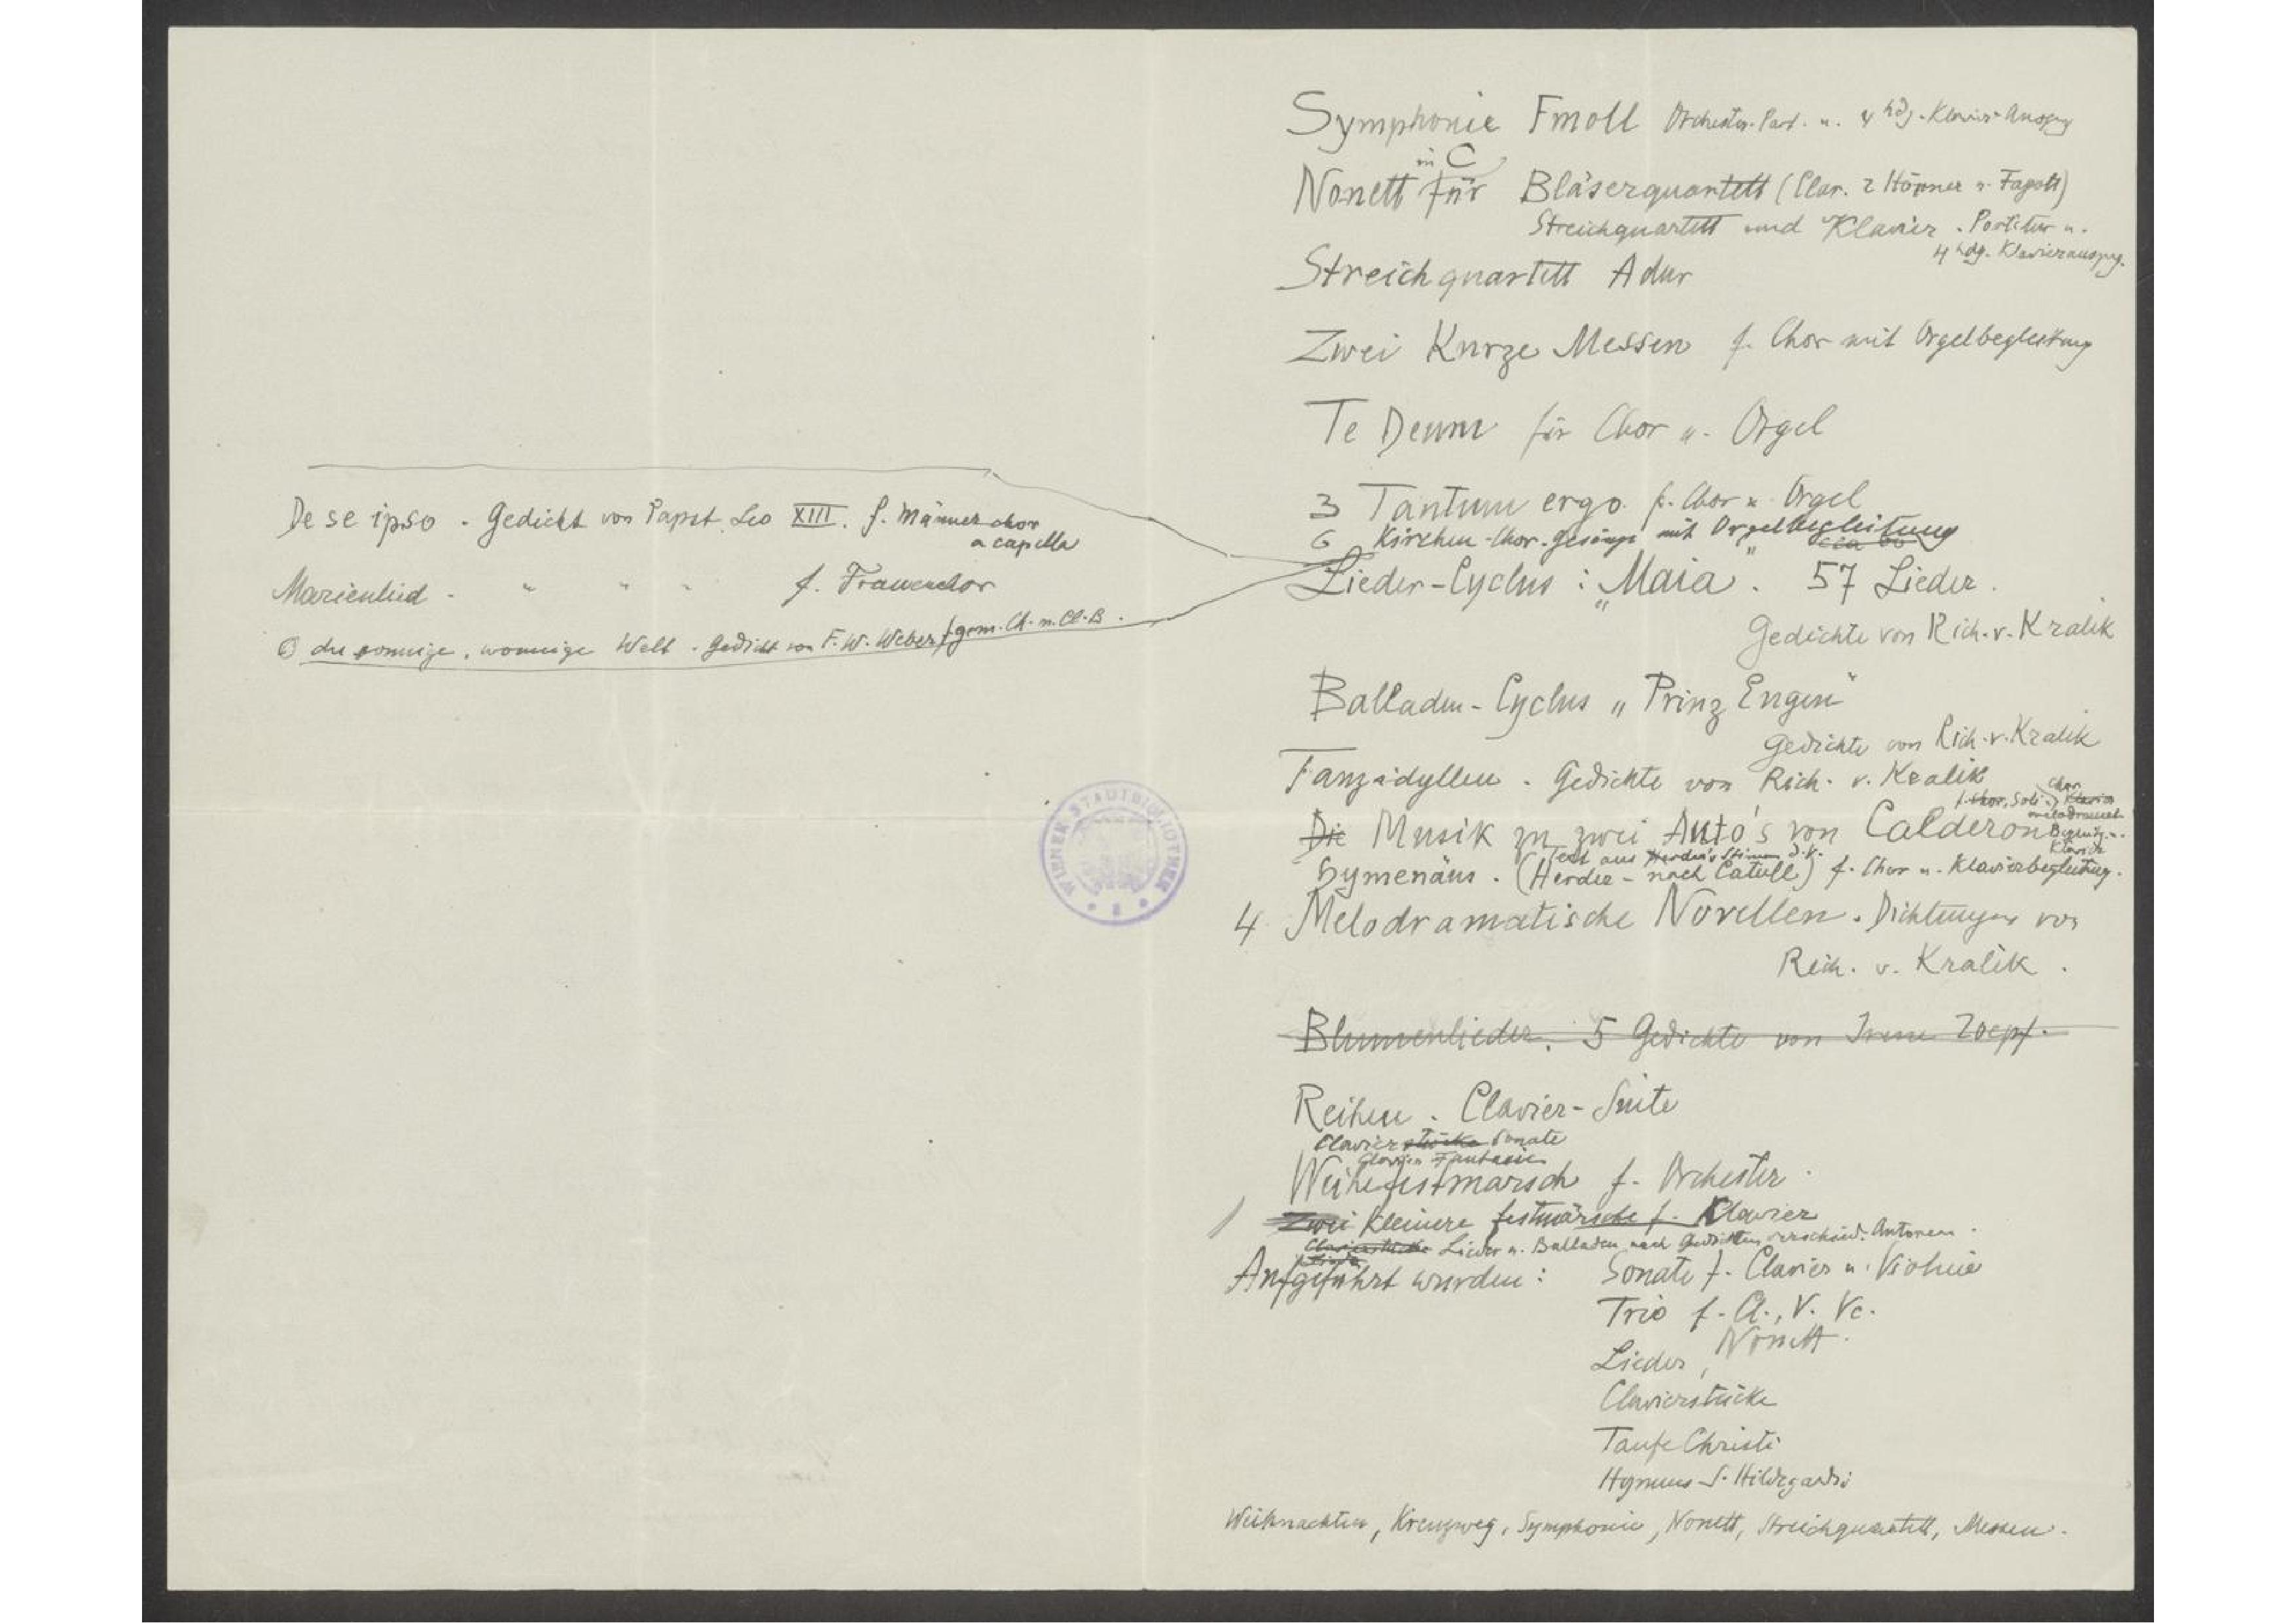 De se ipso - Gedicht von Papst Leo XIII. f. Männerchor
a capella
Marienlied - " " " f. Frauenchor
O du sonnige, wonnige Welt - Gedicht von F. W. Weber f. gem. Ch. m. Cl. B.
WIENER STADTBIBLIOTHEK
Symphonie Fmoll Orchester-Part. u. 4 hdg. Klavier-Auszug
in C
Nonett für Bläserquartett (Clar. 2 Hörner u. Fagott)
Streichquartett und Klavier. Partitur u.
4 hdg. Klavierauszug.
Streichquartett A dur
Zwei Kurze Messen f. Chor mit Orgelbegleitung
Te Deum für Chor u. Orgel
3 Tantum ergo f. Chor u. Orgel
6 Kirchen-Chor-Gesänge mit Orgelbegleitung
Lieder-Cyclus: „Maia". 57 Lieder.
Gedichte von Rich. v. Kralik
Balladen-Cyclus „Prinz Eugen"
Gedichte von Rich. v. Kralik
Tanzidyllen. Gedichte von Rich. v. Kralik
Chor
f. Chor, Soli u. Klavier
melodramat.
Die Musik zu zwei Auto's von Calderon
Begleitg. u.
Klavier
Text aus Herder's Stimmen d. V.
Hymenäus. (Herder - nach Catull) f. Chor u. Klavierbegleitung.
4 Melodramatische Novellen. Dichtungen von
Rich. v. Kralik.
Blumenlieder. 5 Gedichte von Irene Zoepf.
Reihen. Clavier-Suite
Clavierstücke Sonate
Clavier Fantasie
Weihefestmarsch f. Orchester
Zwei Kleinere Festmärsche f. Klavier
Clavierstücke Lieder u. Balladen nach Gedichten verschied. Autoren.
Lieder
Aufgeführt wurden: Sonate f. Clavier u. Violine
Trio f. Cl., V. Vc.
Lieder, Nonett.
Clavierstücke
Taufe Christi
Hymnus S. Hildegardis
Weihnachten, Kreuzweg, Symphonie, Nonett, Streichquartett, Messen.